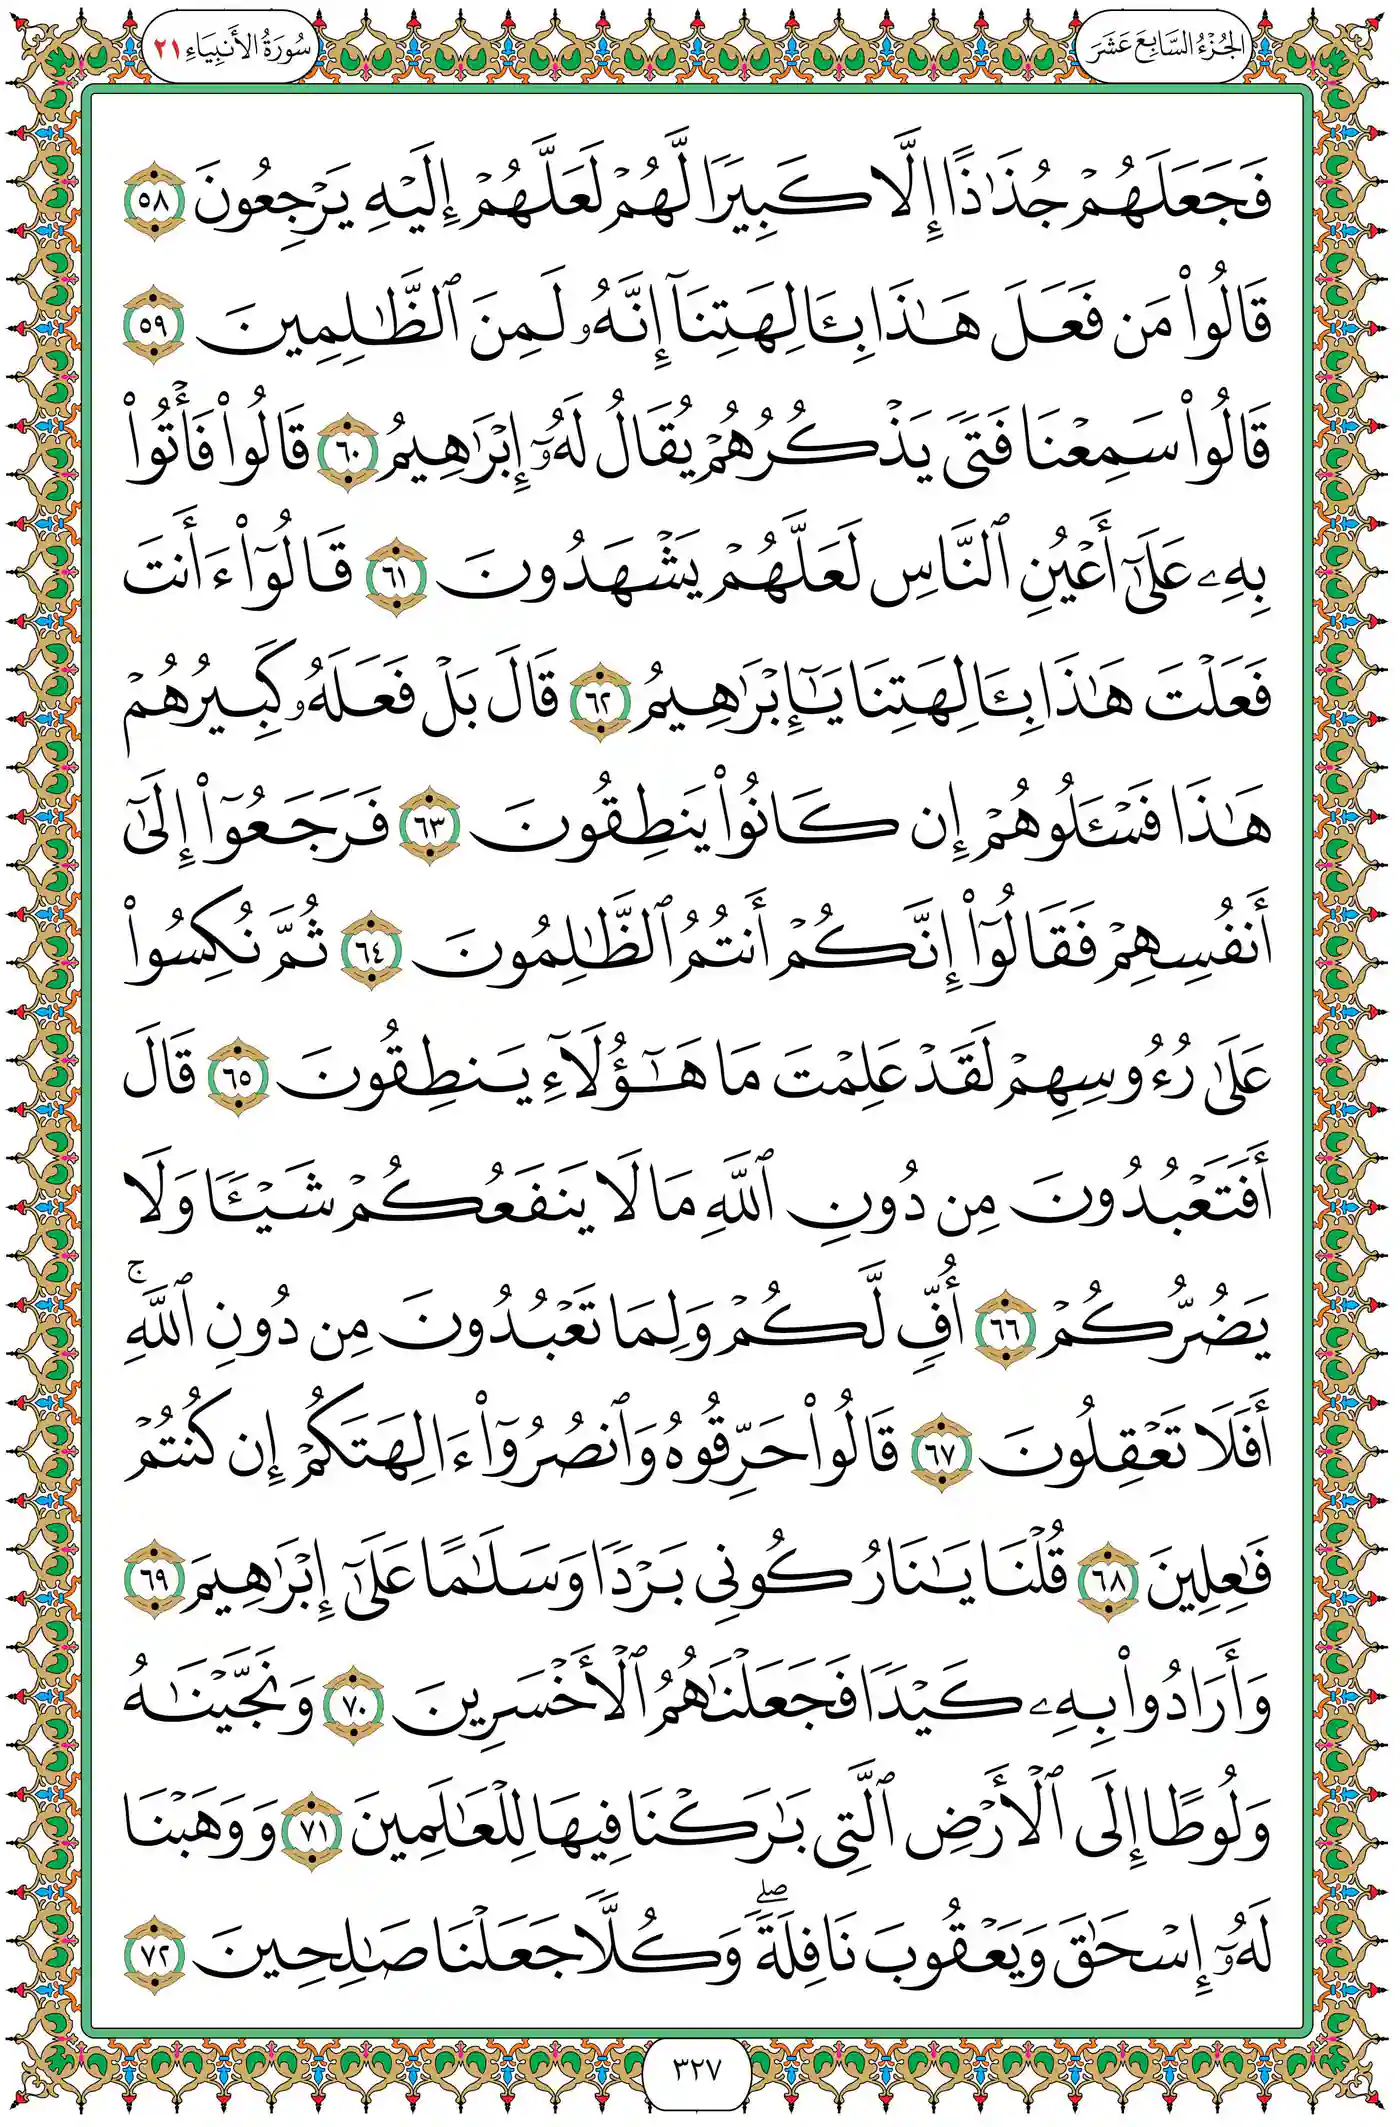 الجُزْءُ السَّابِعَ عَشَرَ
سُورَةُ الأَنبِيَاءِ ٢١
فَجَعَلَهُمْ جُذَٰذًا إِلَّا كَبِيرًا لَّهُمْ لَعَلَّهُمْ إِلَيْهِ يَرْجِعُونَ ٥٨
قَالُوا۟ مَن فَعَلَ هَٰذَا بِـَٔالِهَتِنَآ إِنَّهُۥ لَمِنَ ٱلظَّٰلِمِينَ ٥٩
قَالُوا۟ سَمِعْنَا فَتًى يَذْكُرُهُمْ يُقَالُ لَهُۥٓ إِبْرَٰهِيمُ ٦٠ قَالُوا۟ فَأْتُوا۟
بِهِۦ عَلَىٰٓ أَعْيُنِ ٱلنَّاسِ لَعَلَّهُمْ يَشْهَدُونَ ٦١ قَالُوٓا۟ ءَأَنتَ
فَعَلْتَ هَٰذَا بِـَٔالِهَتِنَا يَٰٓإِبْرَٰهِيمُ ٦٢ قَالَ بَلْ فَعَلَهُۥ كَبِيرُهُمْ
هَٰذَا فَسْـَٔلُوهُمْ إِن كَانُوا۟ يَنطِقُونَ ٦٣ فَرَجَعُوٓا۟ إِلَىٰٓ
أَنفُسِهِمْ فَقَالُوٓا۟ إِنَّكُمْ أَنتُمُ ٱلظَّٰلِمُونَ ٦٤ ثُمَّ نُكِسُوا۟
عَلَىٰ رُءُوسِهِمْ لَقَدْ عَلِمْتَ مَا هَٰٓؤُلَآءِ يَنطِقُونَ ٦٥ قَالَ
أَفَتَعْبُدُونَ مِن دُونِ ٱللَّهِ مَا لَا يَنفَعُكُمْ شَيْـًٔا وَلَا
يَضُرُّكُمْ ٦٦ أُفٍّ لَّكُمْ وَلِمَا تَعْبُدُونَ مِن دُونِ ٱللَّهِ ۚ
أَفَلَا تَعْقِلُونَ ٦٧ قَالُوا۟ حَرِّقُوهُ وَٱنصُرُوٓا۟ ءَالِهَتَكُمْ إِن كُنتُمْ
فَٰعِلِينَ ٦٨ قُلْنَا يَٰنَارُ كُونِى بَرْدًا وَسَلَٰمًا عَلَىٰٓ إِبْرَٰهِيمَ ٦٩
وَأَرَادُوا۟ بِهِۦ كَيْدًا فَجَعَلْنَٰهُمُ ٱلْأَخْسَرِينَ ٧٠ وَنَجَّيْنَٰهُ
وَلُوطًا إِلَى ٱلْأَرْضِ ٱلَّتِى بَٰرَكْنَا فِيهَا لِلْعَٰلَمِينَ ٧١ وَوَهَبْنَا
لَهُۥٓ إِسْحَٰقَ وَيَعْقُوبَ نَافِلَةً ۖ وَكُلًّا جَعَلْنَا صَٰلِحِينَ ٧٢
٣٢٧